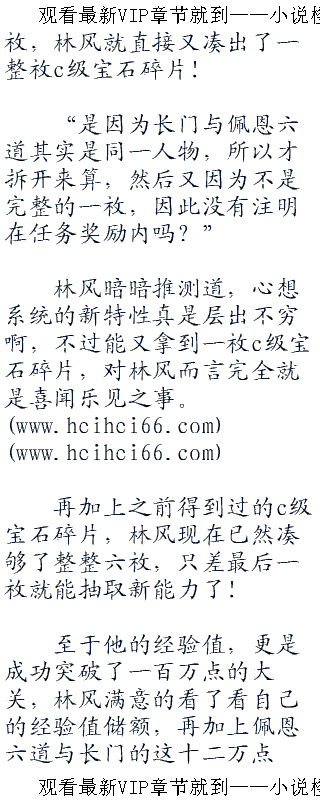 观看最新VIP章节就到——小说检
枚，林风就直接又凑出了一
整枚c级宝石碎片！
“是因为长门与佩恩六
道其实是同一人物，所以才
拆开来算，然后又因为不是
完整的一枚，因此没有注明
在任务奖励内吗？”
林风暗暗推测道，心想
系统的新特性真是层出不穷
啊，不过能又拿到一枚c级宝
石碎片，对林风而言完全就
是喜闻乐见之事。
(www.hcihci66.com)
(www.hcihci66.com)
再加上之前得到过的c级
宝石碎片，林风现在已然凑
够了整整六枚，只差最后一
枚就能抽取新能力了！
至于他的经验值，更是
成功突破了一百万点的大
关，林风满意的看了看自己
的经验值储额，再加上佩恩
六道与长门的这十二万点
观看最新VIP章节就到——小说检